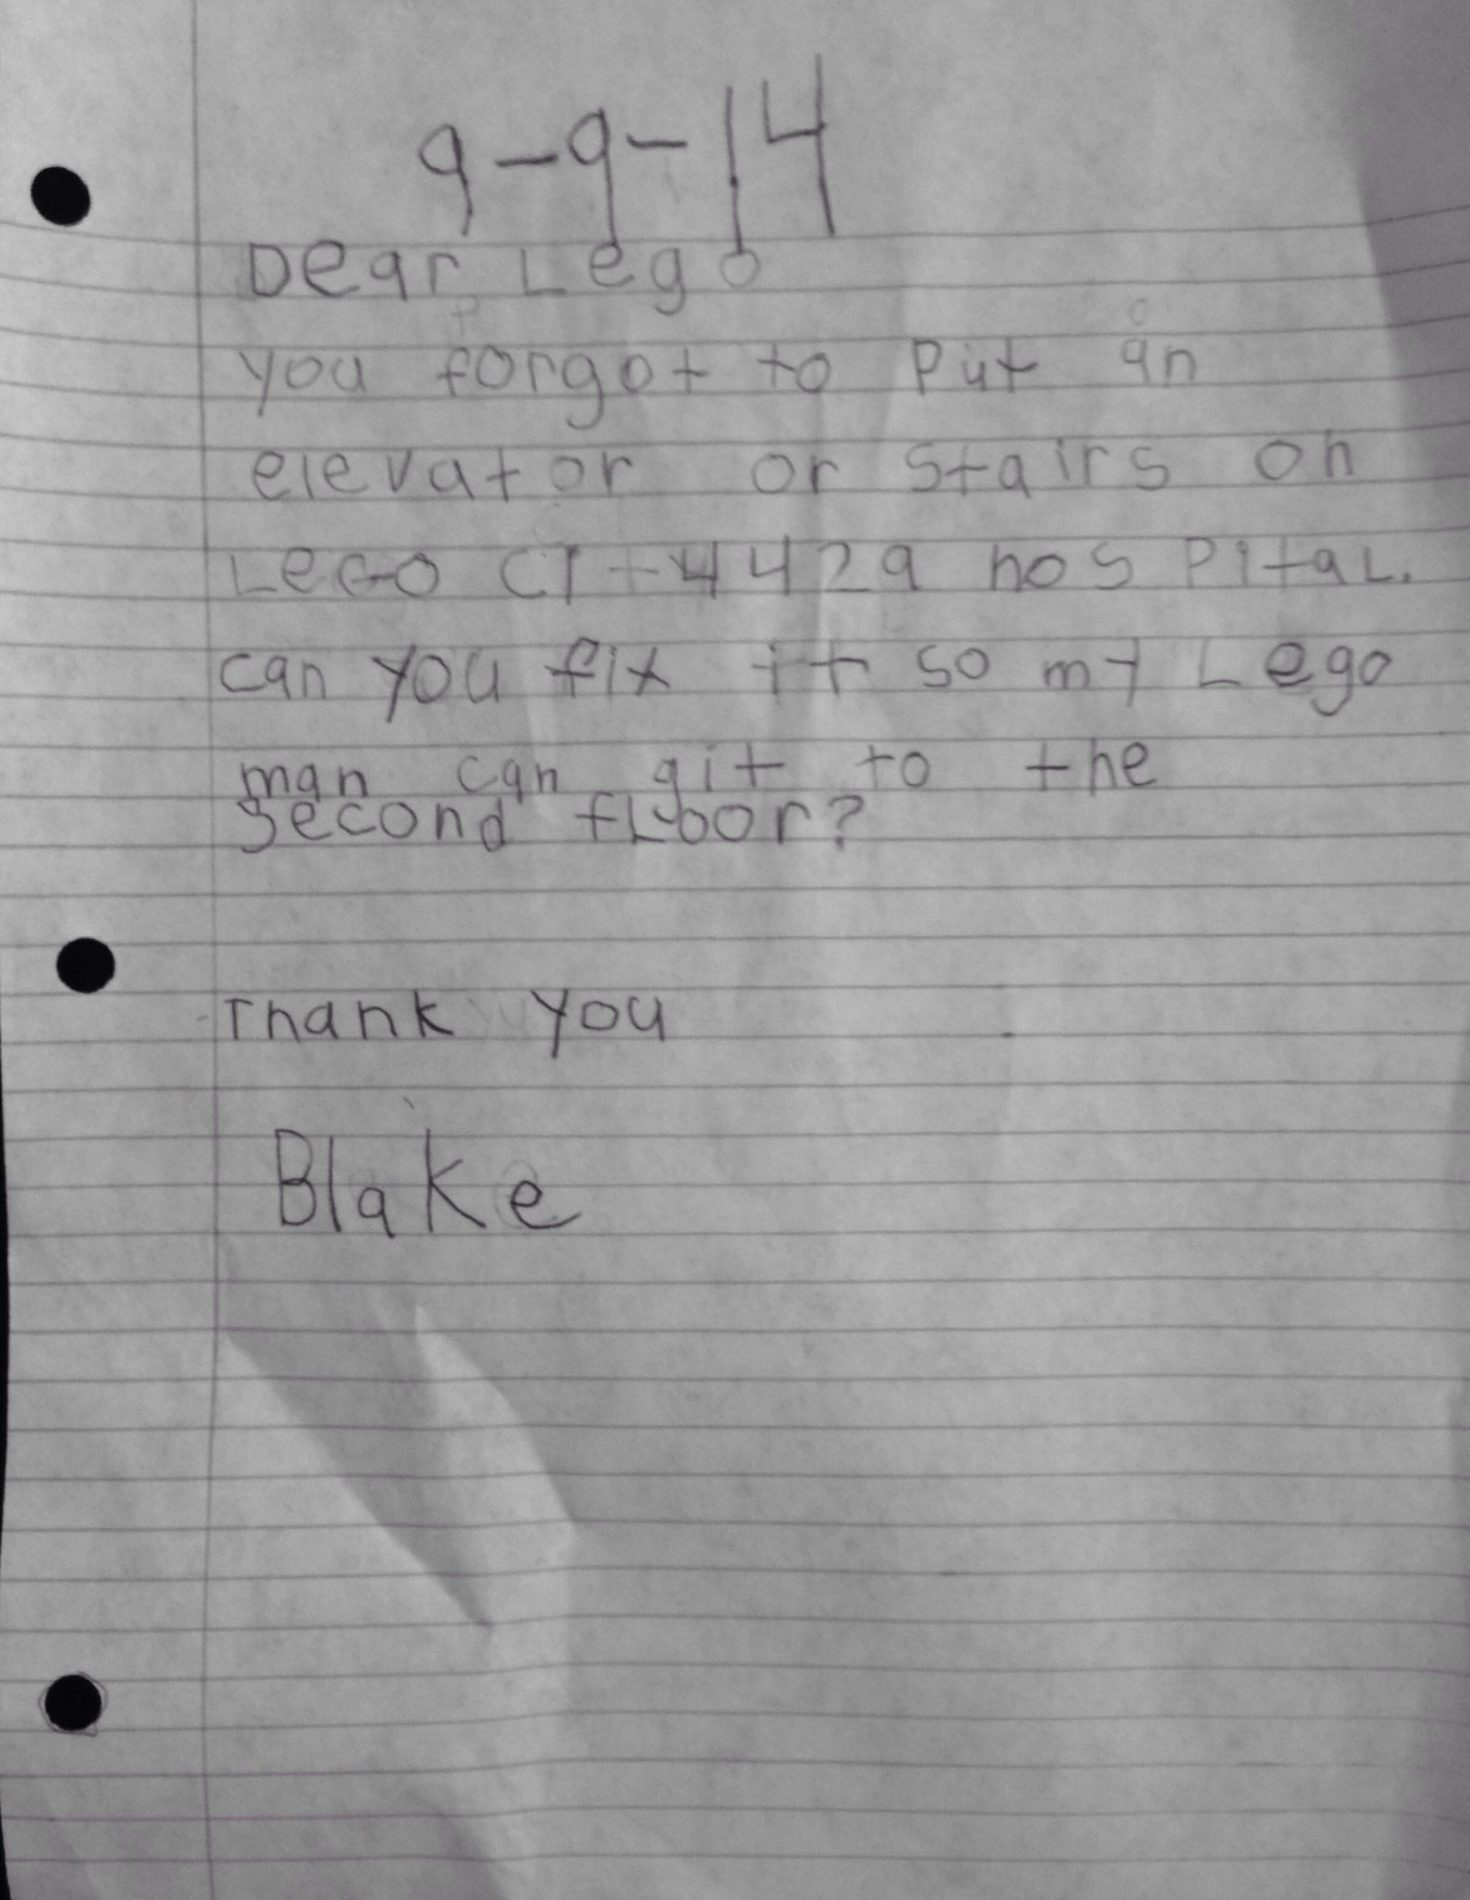 9-9-14
Dear Lego
you forgot to Put an
elevator or stairs on
LEGO CIt 4429 hosPitaL.
can you fix it so my Lego
man can git to the
second fLoor?
Thank you
Blake